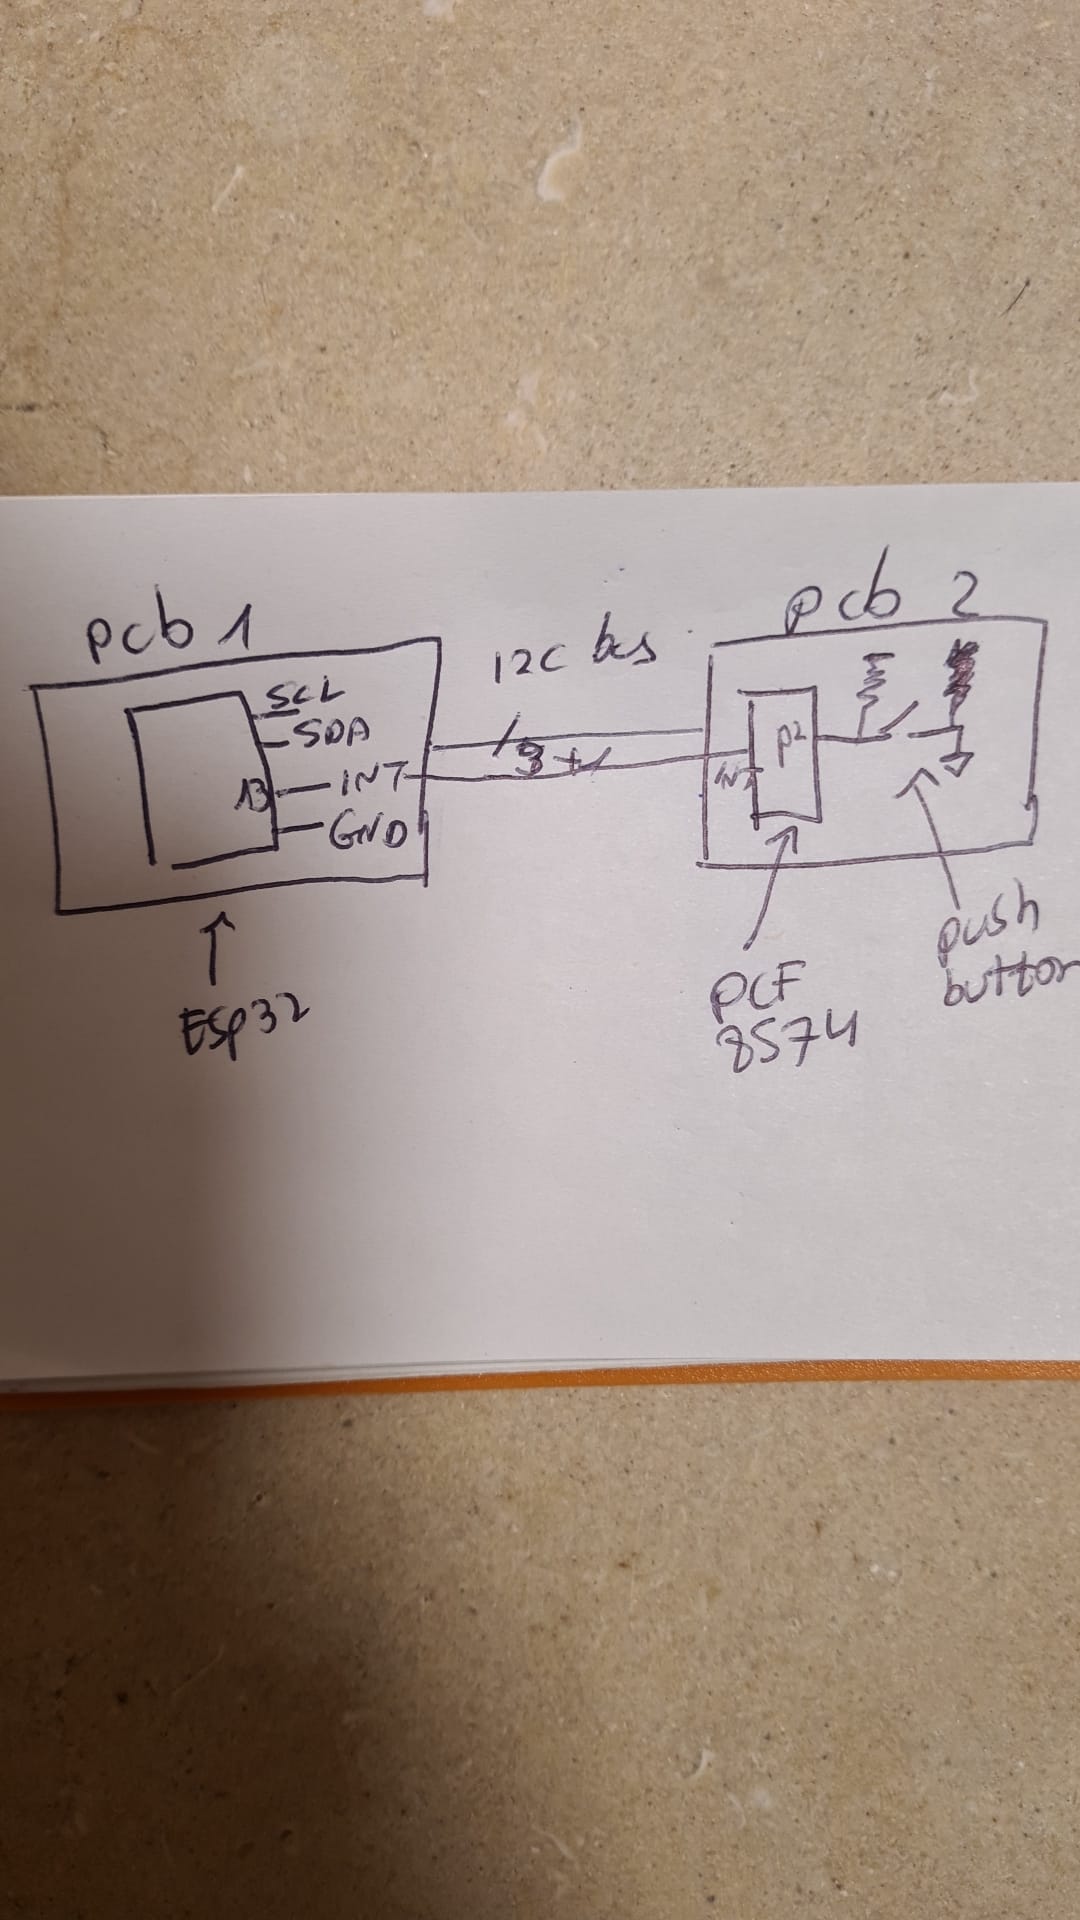 pcb 1
SCL
SDA
13
INT
GND
ESP32
I2C bus
3+1
pcb 2
INT
P2
PCF
8574
push
button